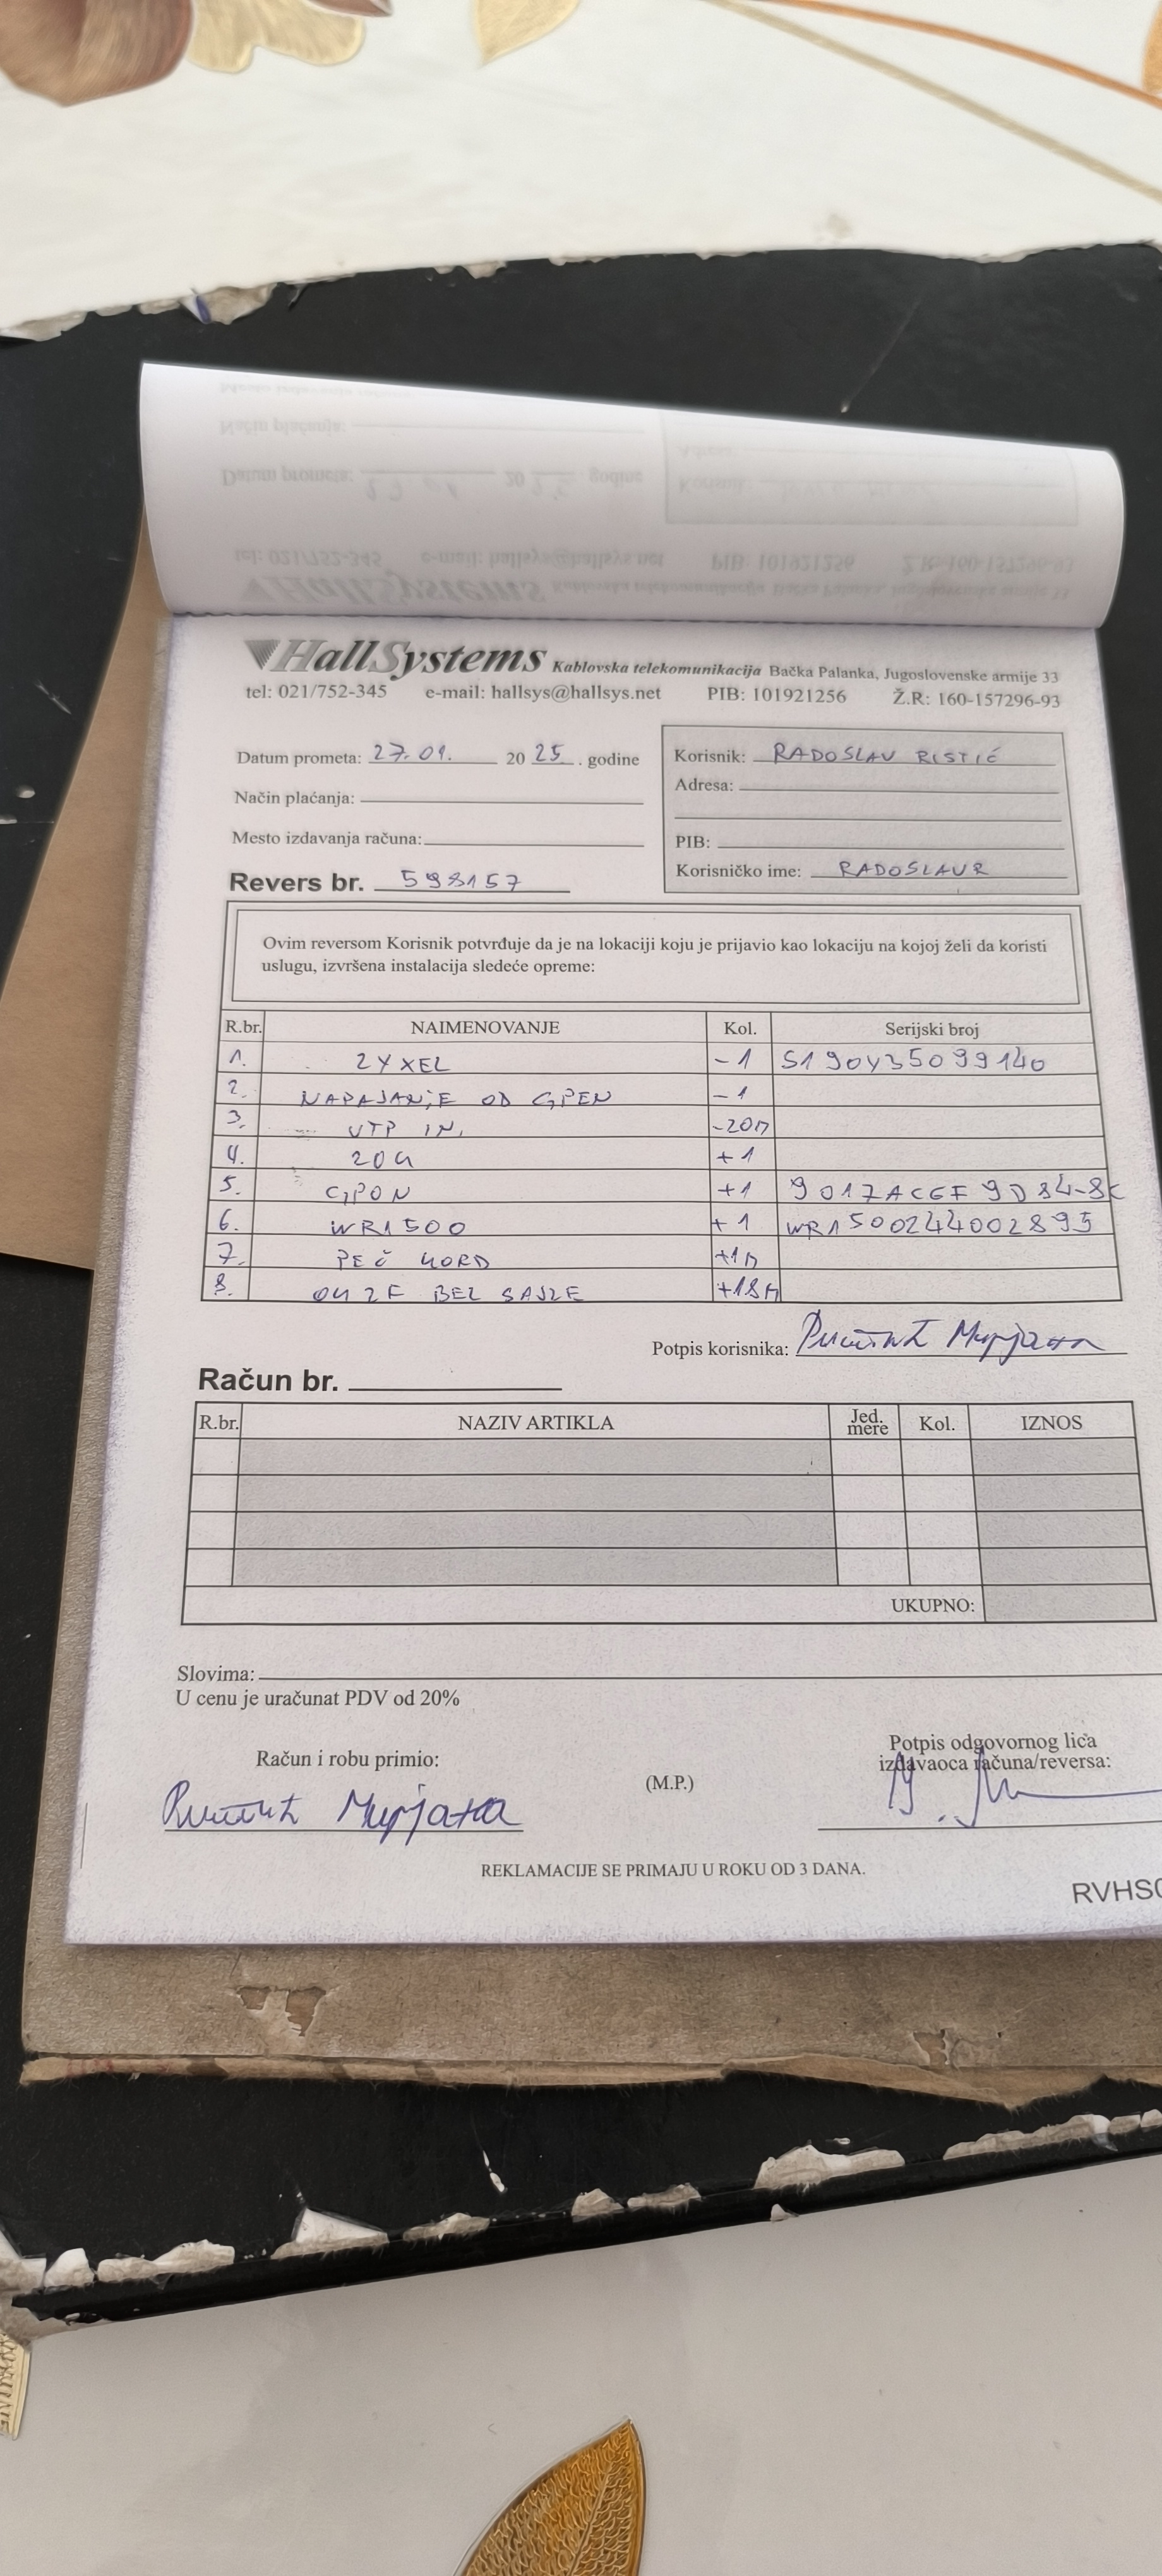 HallSystems Kablovska telekomunikacija Bačka Palanka, Jugoslovenske armije 33
tel: 021/752-345 e-mail: hallsys@hallsys.net PIB: 101921256 Ž.R: 160-157296-93
Datum prometa: 27.01. 20 25 . godine
Način plaćanja:
Mesto izdavanja računa:
Revers br. 598157
Korisnik: RADOSLAV RISTIĆ
Adresa:
PIB:
Korisničko ime: RADOSLAVR
Ovim reversom Korisnik potvrđuje da je na lokaciji koju je prijavio kao lokaciju na kojoj želi da koristi
uslugu, izvršena instalacija sledeće opreme:
R.br. NAIMENOVANJE Kol. Serijski broj
1. ZYXEL -1 S190Y35099140
2. NAPAJANJE OD GPEN -1
3. UTP IN. -20m
4. 204 +1
5. GPON +1 9017ACGF9D84-8C
6. WR1500 +1 WR1500244002895
7. PEČ KORD +1m
8. BEZ SAJLE +18m
Potpis korisnika: Ристић Мирјана
Račun br.
R.br. NAZIV ARTIKLA Jed. mere Kol. IZNOS
UKUPNO:
Slovima:
U cenu je uračunat PDV od 20%
Račun i robu primio:
Ристић Мирјана
(M.P.)
Potpis odgovornog lica
izdavaoca računa/reversa:
REKLAMACIJE SE PRIMAJU U ROKU OD 3 DANA.
RVHS0